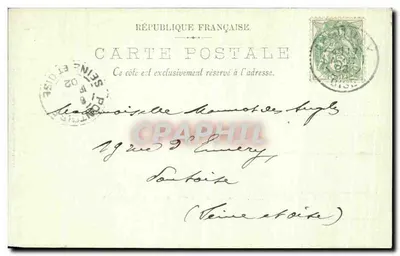 RÉPUBLIQUE FRANÇAISE
CARTE POSTALE
Ce côté est exclusivement réservé à l'adresse.
PONTOISE
SEINE ET OISE
02
Mademoiselle
19 rue d'Ennery
Pontoise
(Seine et oise)
CPAPHIL